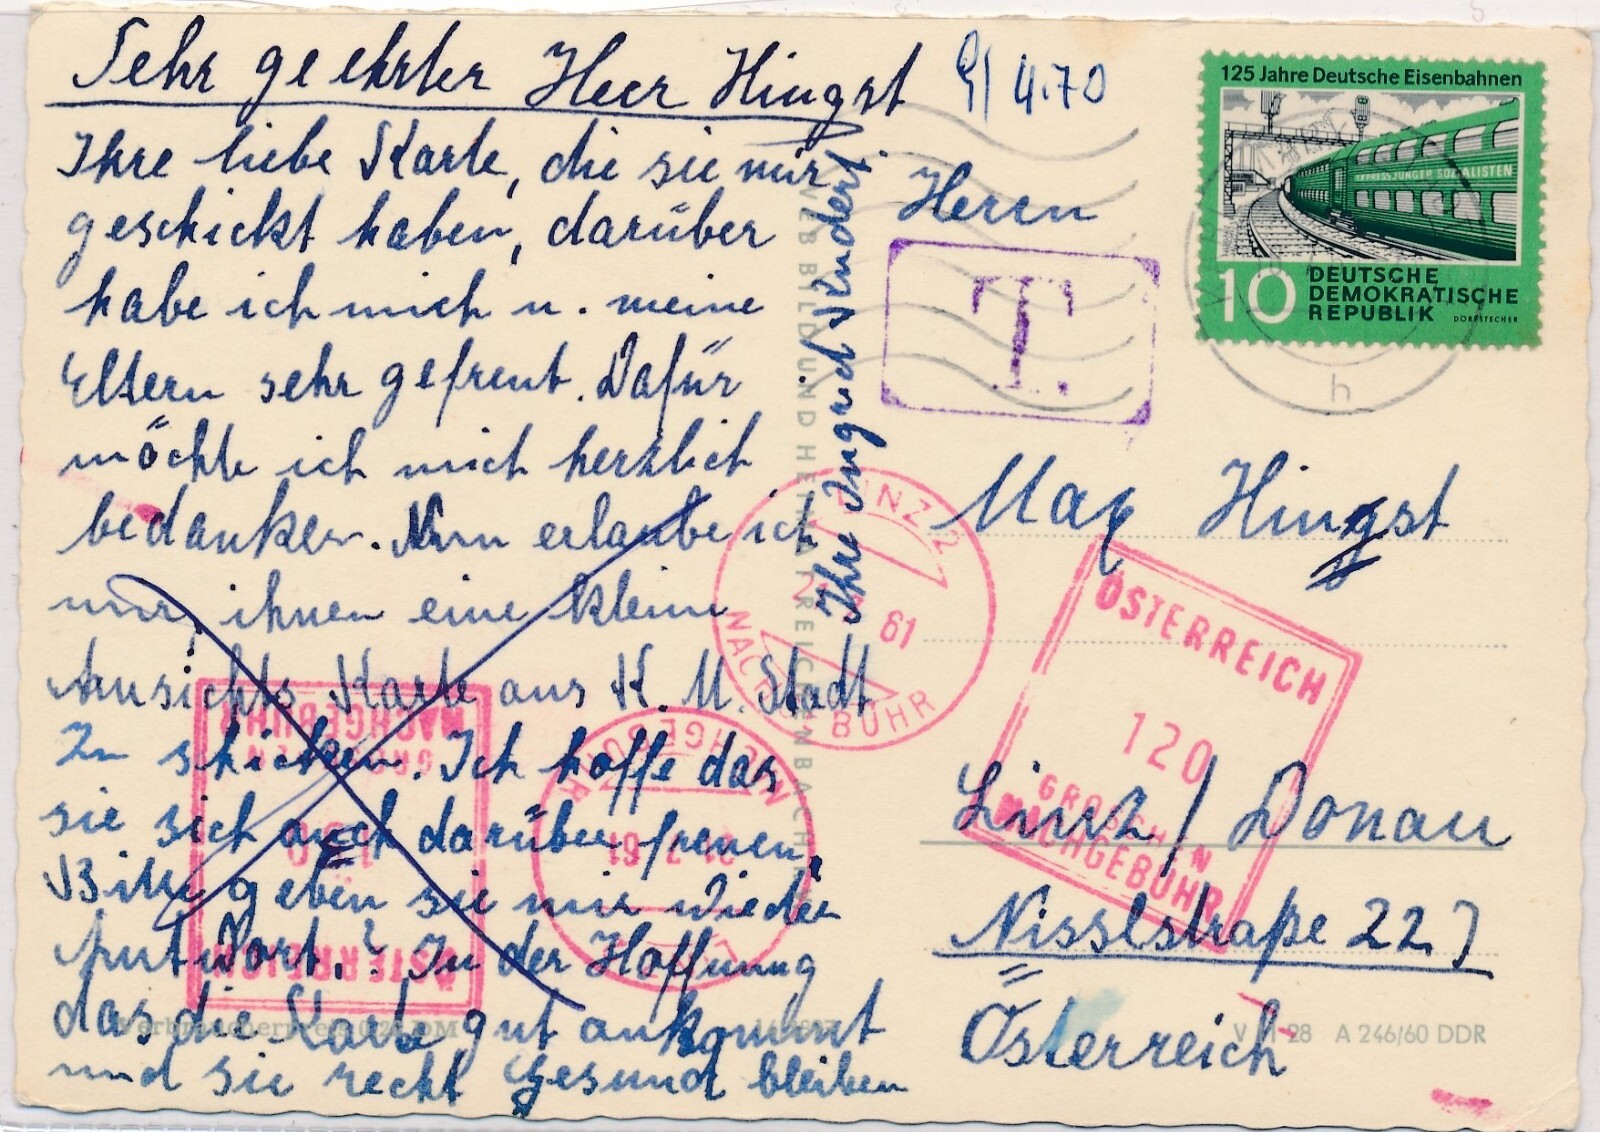 Sehr geehrter Herr Hingst
Ihre liebe Karte, die sie mir
geschickt haben, darüber
habe ich mich u. meine
Eltern sehr gefreut. Dafür
möchte ich mich herzlich
bedanken. Nun erlaube ich
mir, ihnen eine kleine
Ansichts Karte aus K. M. Stadt
Zu schicken. Ich hoffe das
sie sich auch darüber freuen,
Bitte geben sie mir wieder
Antwort.? In der Hoffnung
das die Karte gut ankommt
und sie recht gesund bleiben
Ihre Ingrid Kindert
4.70
125 Jahre Deutsche Eisenbahnen
EXPRESS JUNGER SOZIALISTEN
10 DEUTSCHE
DEMOKRATISCHE
REPUBLIK
DORFSTECHER
h
T.
Herrn
Max Hingst
Linz / Donau
Nisslstraße 22
Österreich
LINZ 2
61
NACHGEBÜHR
ÖSTERREICH
120
GROSCHEN
NACHGEBÜHR
NACHGEBÜHR
GROSCHEN
ÖSTERREICH
NACHGEBÜHR
61
VEB BILD UND HEIMAT REICHENBACH
Verbraucherpreis 0,20 DM
28 A 246/60 DDR